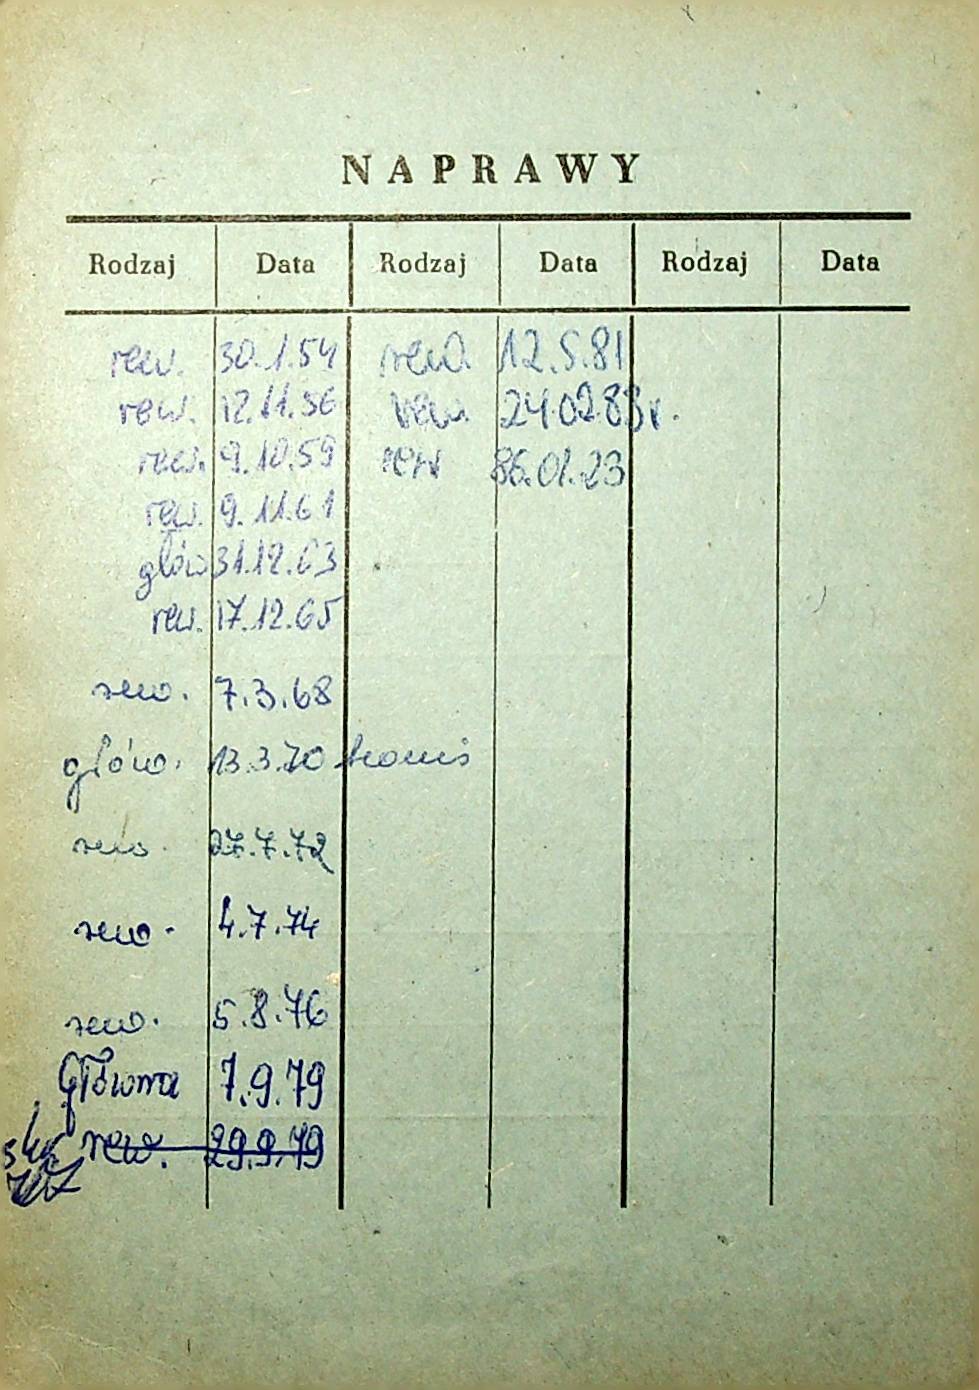 NAPRAWY
Rodzaj Data Rodzaj Data Rodzaj Data
rew. 30.1.54 rew. 12.5.81
rew. 12.11.56 rew. 24.02.83r.
rew. 9.10.59 rew 86.01.23
rew. 9.11.61
głów 31.12.63
rew. 17.12.65
rew. 7.3.68
głów. 13.3.70
rew. 27.7.72
rew. 4.7.74
rew. 5.8.76
Główna 7.9.79
rew. 29.9.79